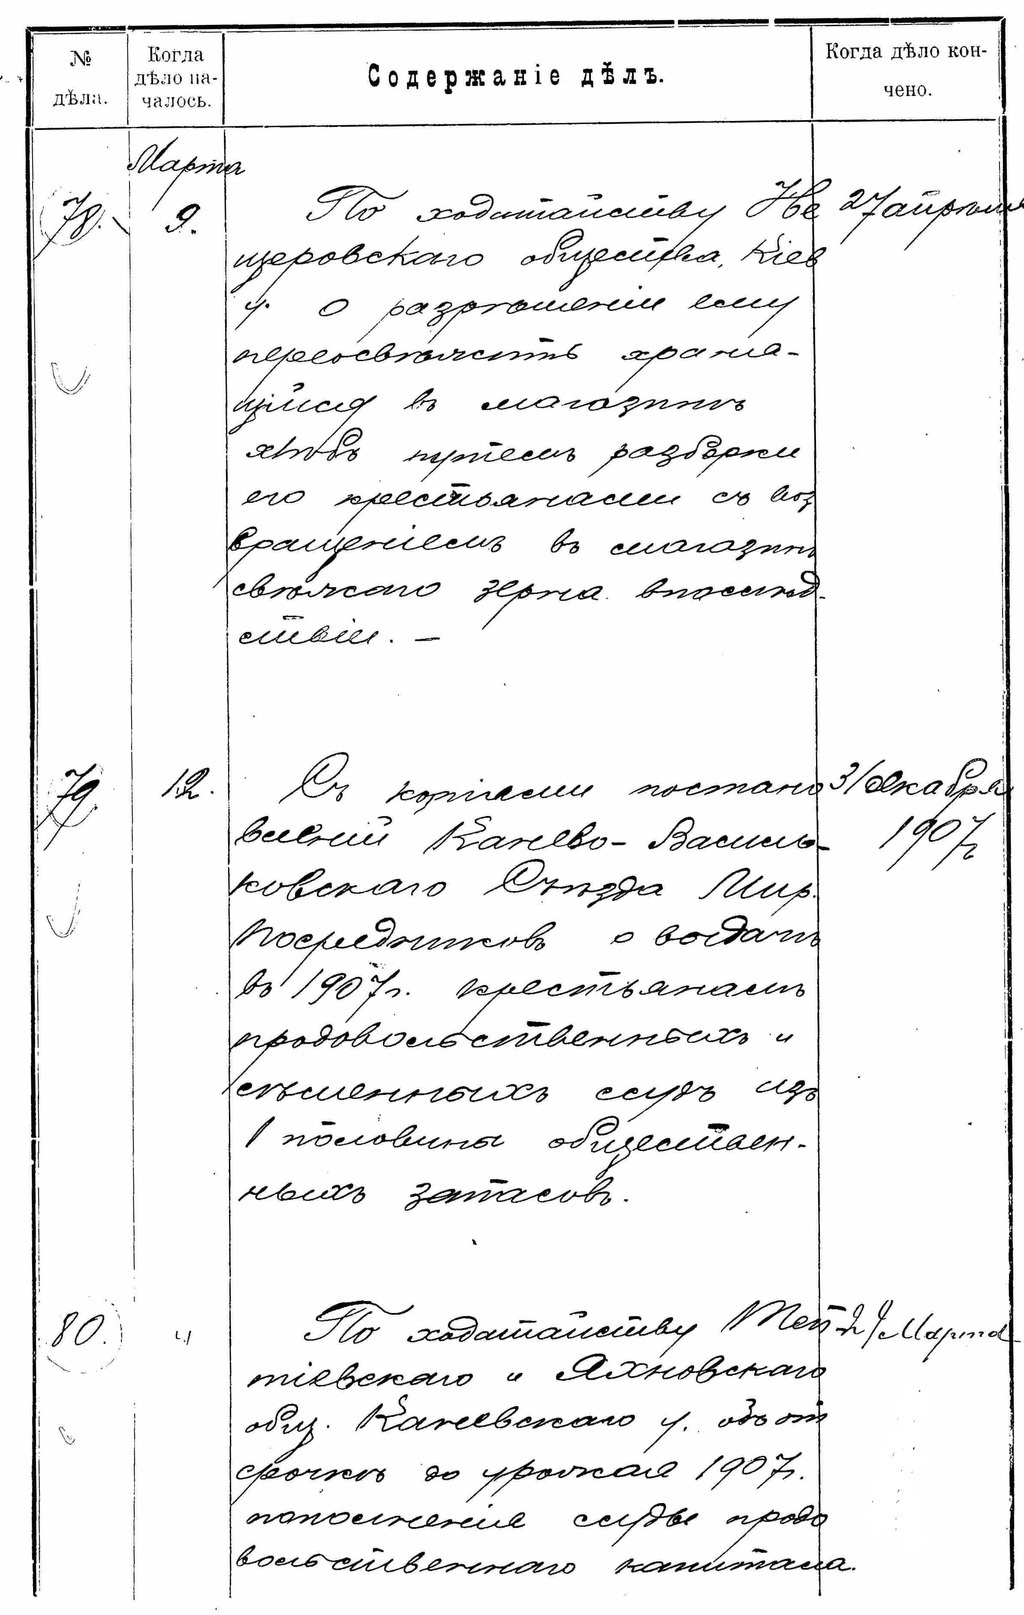 № дѣла.
Когда дѣло на-
чалось.
Содержаніе дѣлъ.
Когда дѣло кон-
чено.
Марта
78. 9. По ходатайству Не 27 апрѣля
щеровскаго общества, Кіев
у. о разрѣшеніи ему
переосвѣжить храня-
щійся въ магазинѣ
хлѣбъ путемъ разборки
его крестьянами съ воз
вращеніемъ въ магазинъ
свѣжаго зерна впослѣд-
ствіи. —
79. 12. Съ копіями постано 31 декабря
вленій Канево-Василь- 1907 г.
ковскаго Съѣзда Мир.
Посредниковъ о выдачѣ
въ 1907 г. крестьянамъ
продовольственныхъ и
сѣменныхъ ссудъ изъ
1 половины обществен-
ныхъ запасовъ.
80. " По ходатайству Меп 27 Марта
тіевскаго и Яхновскаго
общ. Каневскаго у. объ от
срочкѣ до урожая 1907 г.
пополненія ссуды продо
вольственнаго капитала.